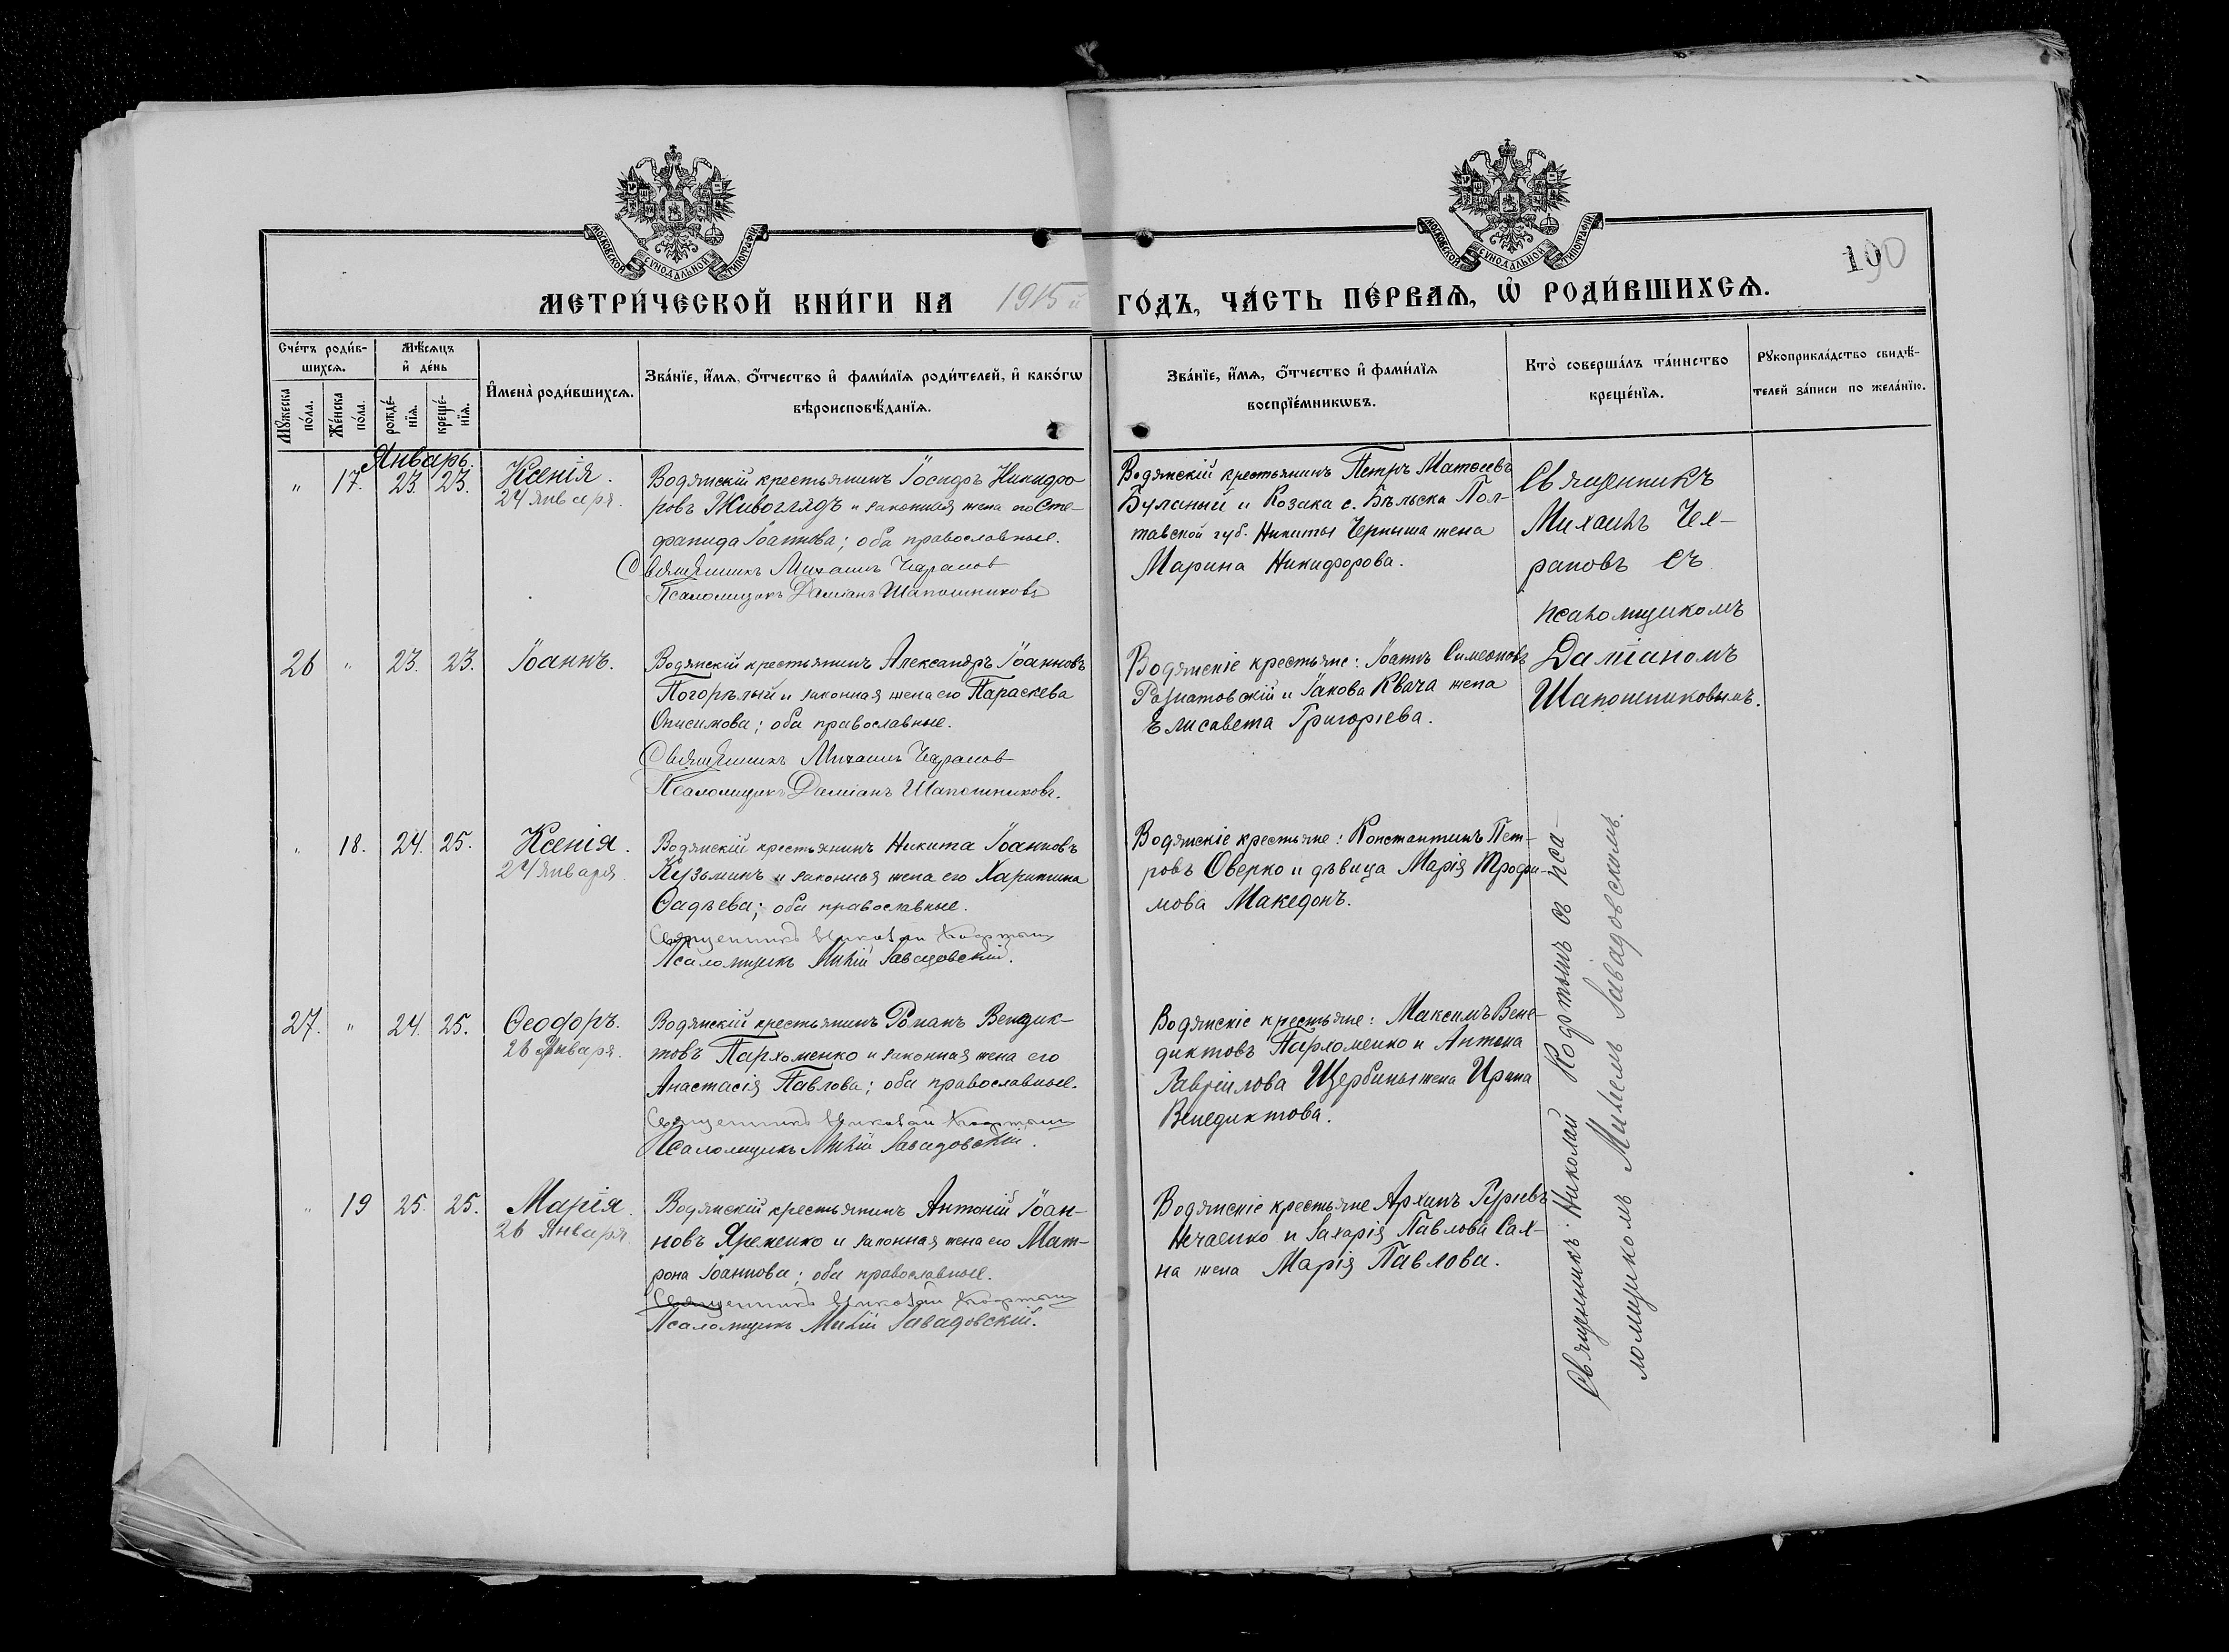 МОСКОВСКОЙ СѴНОДАЛЬНОЙ ТИПОГРАФІИ
МОСКОВСКОЙ СѴНОДАЛЬНОЙ ТИПОГРАФІИ
100
МЕТРИ́ЧЕСКОЙ КНИ́ГИ НА 1915 й ГО́ДЪ, ЧА́СТЬ ПЕ́РВАѦ, Ѽ РОДИ́ВШИХСѦ.
Сче́тъ роди́в-
шихсѧ.
Мꙋ́жеска по́ла.
Же́нска по́ла.
Мѣ́сѧцъ
и҆ де́нь
рожде́-
нїѧ.
креще́-
нїѧ.
И҆мена̀ роди́вшихсѧ.
Зва́нїе, и҆́мѧ, ѻ҆́тчество и҆ фами́лїѧ роди́телей, и҆ како́гѡ
вѣроисповѣ́данїѧ.
Зва́нїе, и҆́мѧ, ѻ҆́тчество и҆ фами́лїѧ
воспрїе́мникѡвъ.
Кто̀ соверша́лъ та́инство
креще́нїѧ.
Рꙋкоприкла́дство свидѣ́-
телей за́писи по жела́нїю.
Январь.
" 17. 23. 23. Ксенія.
24 января.
Водянскій крестьянинъ Іосифъ Никифо-
ровъ Живоглядъ и законная жена его Сте-
фанида Іоаннова; оба православные.
Священникъ Михаилъ
Псаломщикъ Даміанъ Шапошниковъ
Водянскій крестьянинъ Петръ Матѳеевъ
Буланый и Козака с. Бѣльска Пол-
тавской губ. Никиты Черныша жена
Марина Никифорова.
Священникъ
Михаилъ Чех-
рановъ съ
псаломщикомъ
Даміаномъ
Шапошниковымъ.
26 " 23. 23. Іоаннъ.
Водянскій крестьянинъ Александръ Іоанновъ
Погорѣлый и законная жена его Параскева
Онисимова; оба православные.
Священникъ Михаилъ
Псаломщикъ Даміанъ Шапошниковъ.
Водянскіе крестьяне: Іоаннъ Симеоновъ
и Іакова Квача жена
Елисавета Григорьева.
" 18. 24. 25. Ксенія.
24 января.
Водянскій крестьянинъ Никита Іоанновъ
Кузьминъ и законная жена его Харитина
Ѳадѣева; оба православные.
Священникъ Николай
Псаломщикъ Завадовскій.
Водянскіе крестьяне: Константинъ Пет-
ровъ Оверко и дѣвица Марія Трофи-
мова Македонъ.
27. " 24. 25. Ѳеодоръ.
26 Января.
Водянскій крестьянинъ Романъ Венедик-
товъ Пархоменко и законная жена его
Анастасія Павлова; оба православные.
Священникъ Николай
Псаломщикъ Завадовскій.
Водянскіе крестьяне: Максимъ Вене-
диктовъ Пархоменко и Антона
Гавріилова Щербины жена Ирина
Венедиктова.
" 19 25. 25. Марія.
26 Января
Водянскій крестьянинъ Антоній Іоан-
новъ Яременко и законная жена его Мат-
рона Іоаннова; оба православные.
Священникъ Николай
Псаломщикъ Завадовскій.
Водянскіе крестьяне Архипъ Гурьевъ
Нечаенко и Захарія Павлова Сах-
на жена Марія Павлова.
Священникъ Николай съ пса-
ломщикомъ Завадовскимъ.